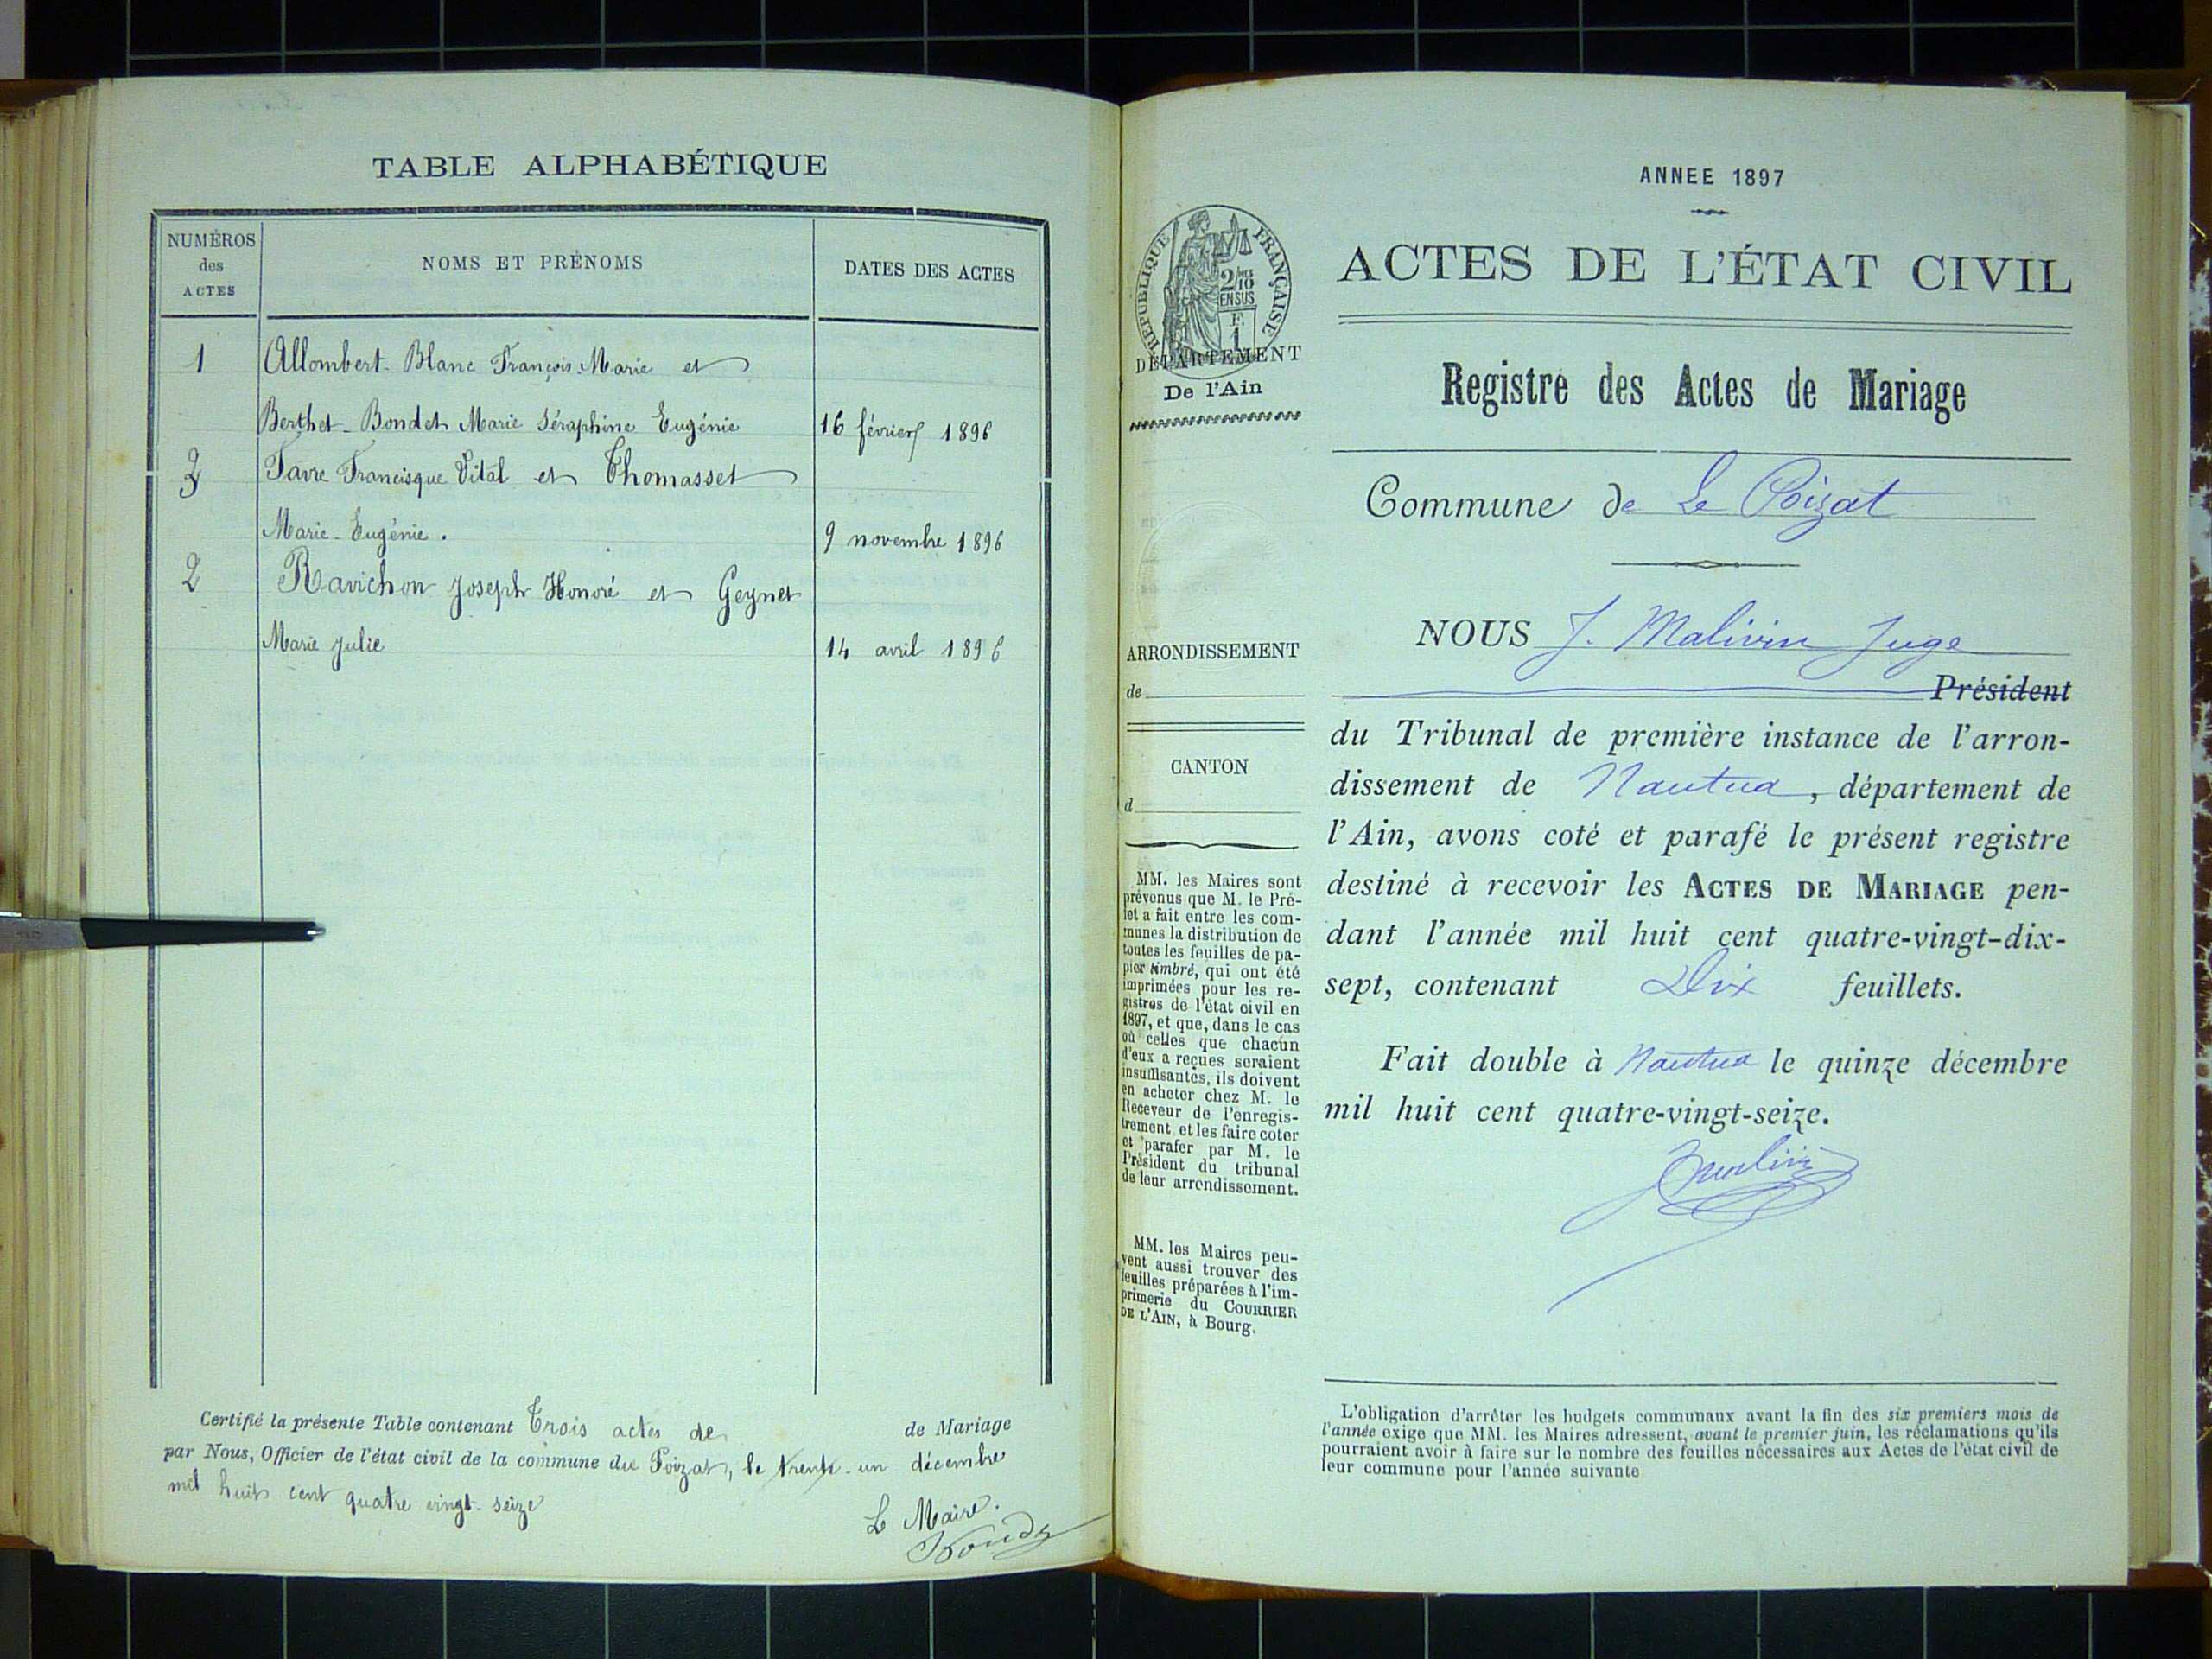 TABLE ALPHABÉTIQUE
NUMÉROS
des
ACTES
NOMS ET PRÉNOMS
DATES DES ACTES
1 Allombert-Blanc François-Marie et
Berthet-Bondet Marie Séraphine Eugénie 16 février 1896
3 Favre Francisque Vital et Thomasset
Marie-Eugénie. 9 novembre 1896
2 Ravichon Joseph Honoré et Geynet
Marie Julie 14 avril 1896
Certifié la présente Table contenant Trois actes de de Mariage
par Nous, Officier de l'état civil de la commune du Poizat, le trente-un décembre
mil huit cent quatre vingt-seize
Le Maire.
ANNEE 1897
ACTES DE L'ÉTAT CIVIL
Registre des Actes de Mariage
Commune de Le Poizat
NOUS J. Malivin Juge
Président
du Tribunal de première instance de l'arron-
dissement de Nantua, département de
l'Ain, avons coté et parafé le présent registre
destiné à recevoir les ACTES DE MARIAGE pen-
dant l'année mil huit cent quatre-vingt-dix-
sept, contenant Dix feuillets.
Fait double à Nantua le quinze décembre
mil huit cent quatre-vingt-seize.
RÉPUBLIQUE FRANÇAISE
2/10
EN SUS
F.
1
DÉPARTEMENT
De l'Ain
ARRONDISSEMENT
de
CANTON
d
MM. les Maires sont
prévenus que M. le Pré-
fet a fait entre les com-
munes la distribution de
toutes les feuilles de pa-
pier timbré, qui ont été
imprimées pour les re-
gistres de l'état civil en
1897, et que, dans le cas
où celles que chacun
d'eux a reçues seraient
insuffisantes, ils doivent
en acheter chez M. le
Receveur de l'enregis-
trement et les faire coter
et parafer par M. le
Président du tribunal
de leur arrondissement.
MM. les Maires peu-
vent aussi trouver des
feuilles préparées à l'im-
primerie du COURRIER
DE L'AIN, à Bourg.
L'obligation d'arrêter les budgets communaux avant la fin des six premiers mois de
l'année exige que MM. les Maires adressent, avant le premier juin, les réclamations qu'ils
pourraient avoir à faire sur le nombre des feuilles nécessaires aux Actes de l'état civil de
leur commune pour l'année suivante